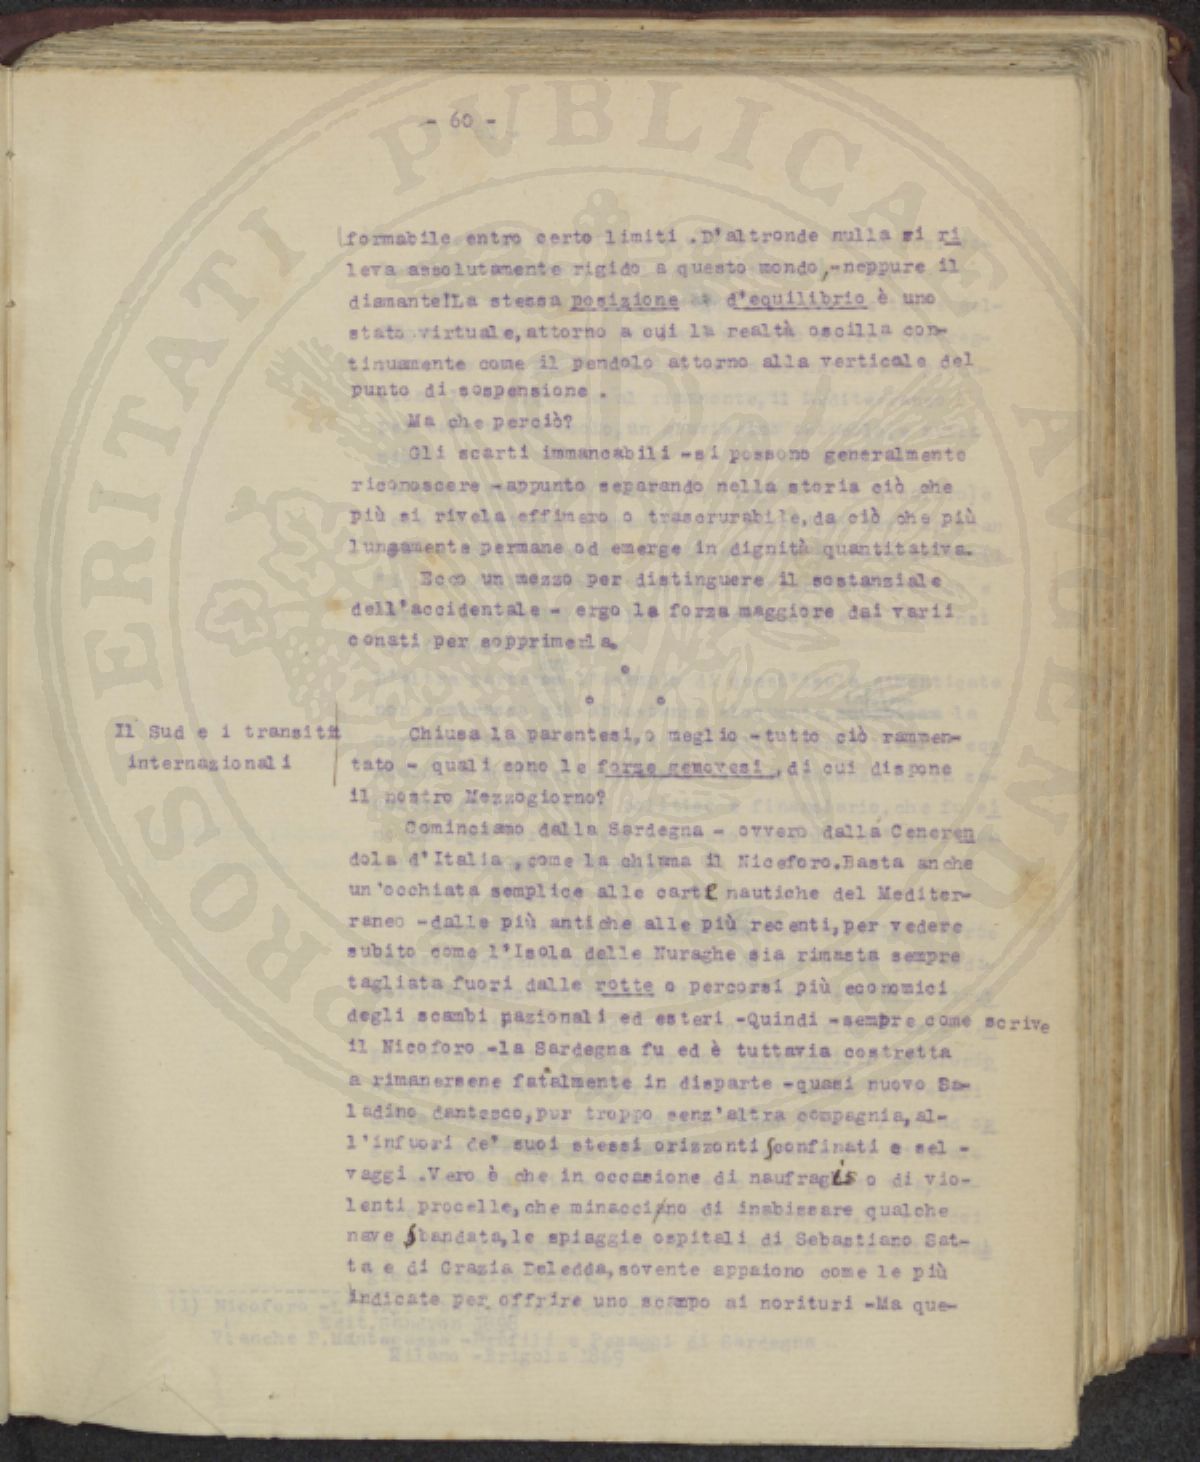 - 60 -
formabile entro certo limiti .D'altronde nulla si ri
leva assolutamente rigido a questo mondo,-neppure il
diamante!La stessa posizione d'equilibrio è uno
stato virtuale,attorno a cui la realtà oscilla con-
tinuamente come il pendolo attorno alla verticale del
punto di sospensione .
Ma che perciò?
Gli scarti immancabili -si possono generalmente
riconoscere -appunto separando nella storia ciò che
più si rivela effimero o trascrurabile,da ciò che più
lungamente permane od emerge in dignità quantitativa.
Ecco un mezzo per distinguere il sostanziale
dell'accidentale - ergo la forza maggiore dai varii
conati per sopprimerla.
Il Sud e i transiti
internazionali
Chiusa la parentesi,o meglio -tutto ciò rammen-
tato - quali sono le forze genovesi ,di cui dispone
il nostro Mezzogiorno?
Cominciamo dalla Sardegna - ovvero dalla Ceneren
dola d'Italia ,come la chiama il Niceforo.Basta anche
un'occhiata semplice alle carte nautiche del Mediter-
raneo -dalle più antiche alle più recenti,per vedere
subito come l'Isola delle Nuraghe sia rimasta sempre
tagliata fuori dalle rotte o percorsi più economici
degli scambi nazionali ed esteri -Quindi -sempre come scrive
il Nicoforo -la Sardegna fu ed è tuttavia costretta
a rimanersene fatalmente in disparte -quasi nuovo Sa-
ladino dantesco,pur troppo senz'altra compagnia,al-
l'infuori de' suoi stessi orizzonti sconfinati e sel -
vaggi .Vero è che in occasione di naufragis o di vio-
lenti procelle,che minaccino di inabissare qualche
nave sbandata,le spiaggie ospitali di Sebastiano Sat-
ta e di Grazia Deledda,sovente appaiono come le più
indicate per offrire uno scampo ai norituri -Ma que-
SOROR
POSTERITATI PUBLICAE AUGENDO